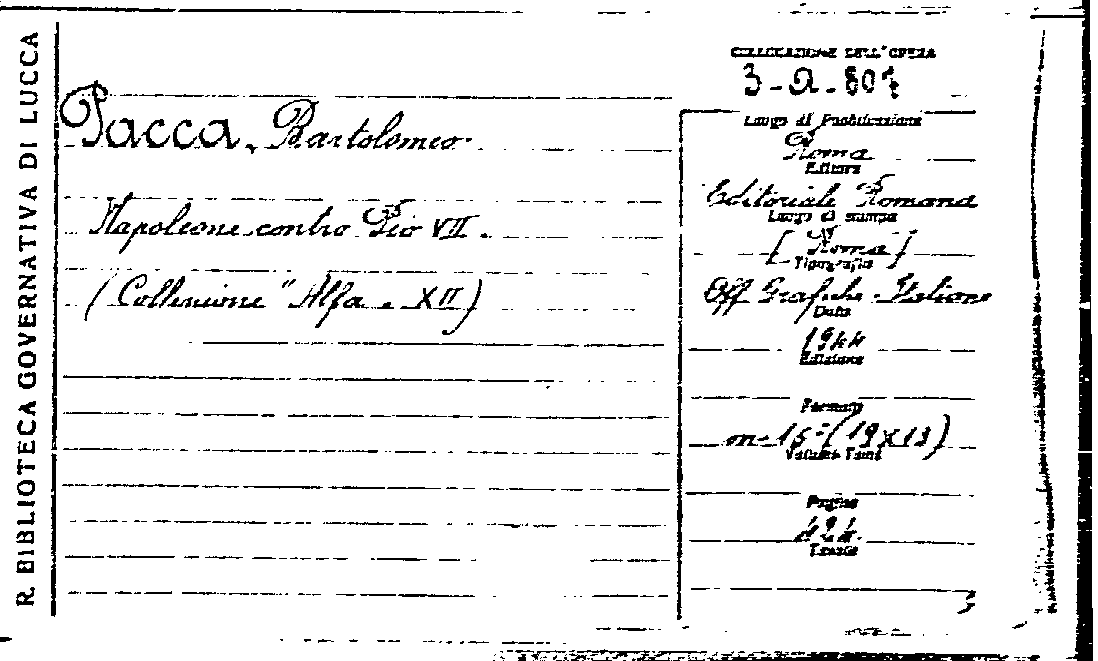 R. BIBLIOTECA GOVERNATIVA DI LUCCA
Pacca, Bartolomeo
Napoleone contro Pio VII.
(Collezione "Alfa" XII)
COLLOCAZIONE DELL'OPERA
3-Q-807
Luogo di Pubblicazione
Roma
Editore
Editoriale Romana
Luogo di stampa
[Roma]
Tipografia
Off Grafiche Italiane
Data
1944
Edizione
Formato
in-16°(19x13)
Volume Tomi
Pagine
424.
Tavole